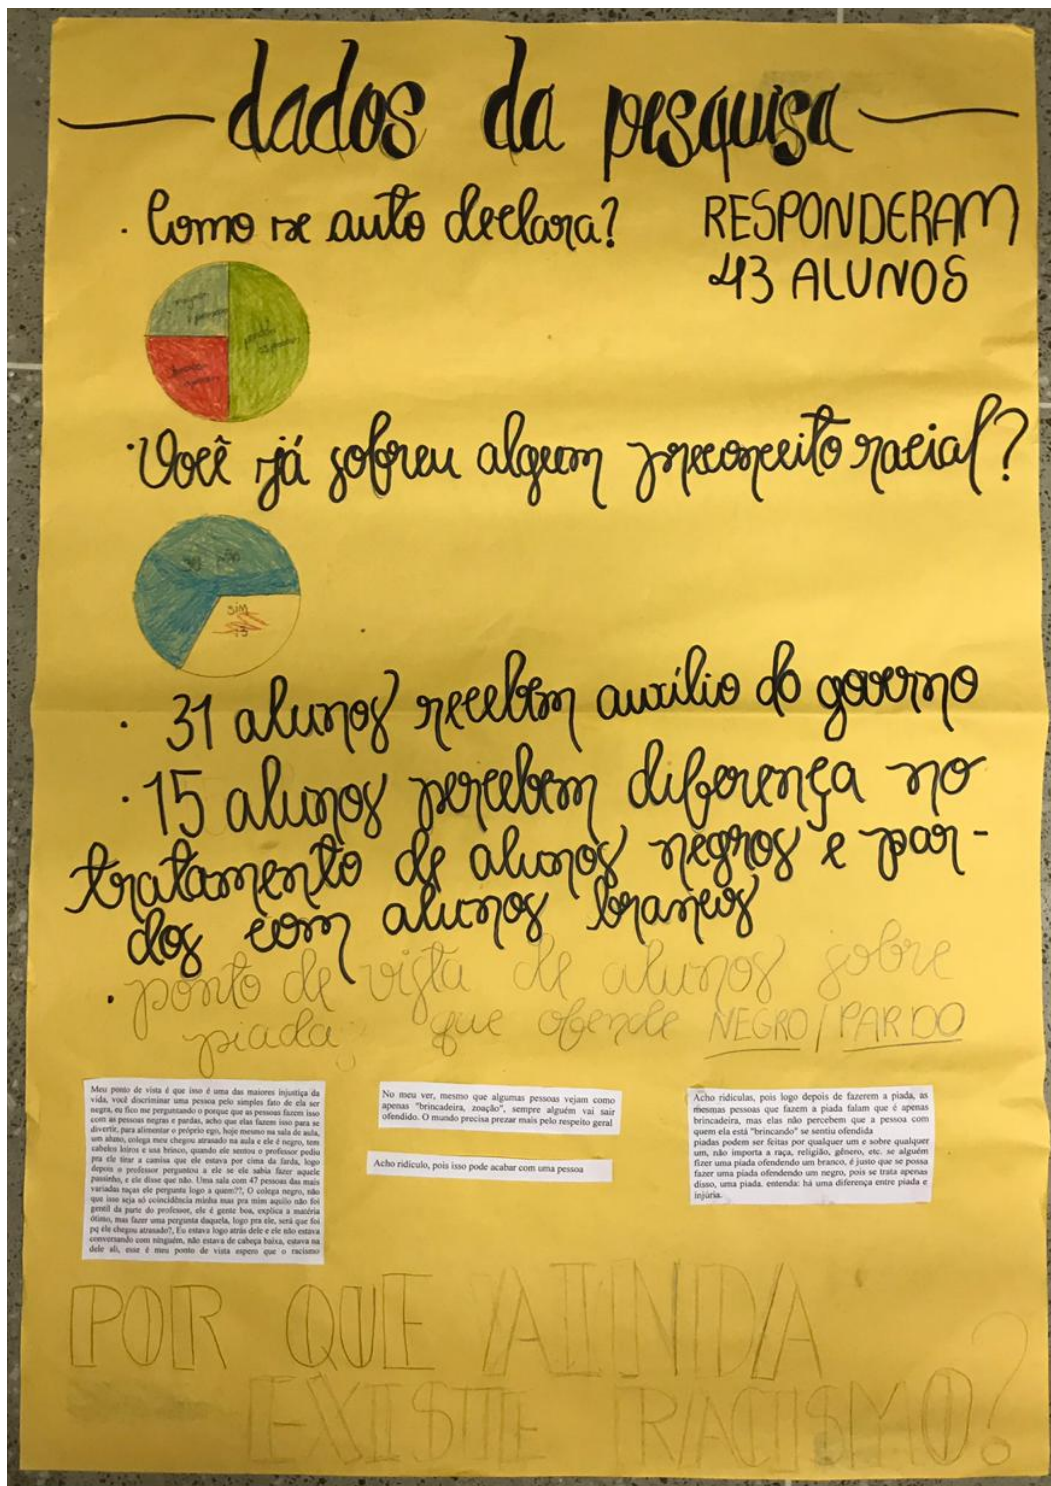 dados da pesquisa
· Como se auto declara?
RESPONDERAM
43 ALUNOS
negros
pardos
brancos
· Você já sofreu algum preconceito racial?
30 não
sim
13
· 31 alunos recebem auxílio do governo
· 15 alunos percebem diferença no
tratamento de alunos negros e par-
dos com alunos brancos
· ponto de vista de alunos sobre
piada que ofende NEGRO/PARDO
Meu ponto de vista é que isso é uma das maiores injustiça da
vida, você discriminar uma pessoa pelo simples fato de ela ser
negra, eu fico me perguntando o porque que as pessoas fazem isso
com as pessoas negras e pardas, acho que elas fazem isso para se
divertir, para alimentar o próprio ego, hoje mesmo na sala de aula,
um aluno, colega meu chegou atrasado na aula e ele é negro, tem
cabelos loiros e usa brinco, quando ele sentou o professor pediu
pra ele tirar a camisa que ele estava por cima da farda, logo
depois o professor perguntou a ele se ele sabia fazer aquele
passinho, e ele disse que não. Uma sala com 47 pessoas das mais
variadas raças ele pergunta logo a quem??, O colega negro, não
que isso seja só coincidência minha mas pra mim aquilo não foi
gentil da parte do professor, ele é gente boa, explica a matéria
ótimo, mas fazer uma pergunta daquela, logo pra ele, será que foi
pq ele chegou atrasado?, Eu estava logo atrás dele e ele não estava
conversando com ninguém, não estava de cabeça baixa, estava na
dele ali, esse é meu ponto de vista espero que o racismo
No meu ver, mesmo que algumas pessoas vejam como
apenas "brincadeira, zoação", sempre alguém vai sair
ofendido. O mundo precisa prezar mais pelo respeito geral
Acho ridículo, pois isso pode acabar com uma pessoa
Acho ridículas, pois logo depois de fazerem a piada, as
mesmas pessoas que fazem a piada falam que é apenas
brincadeira, mas elas não percebem que a pessoa com
quem ela está "brincando" se sentiu ofendida
piadas podem ser feitas por qualquer um e sobre qualquer
um, não importa a raça, religião, gênero, etc. se alguém
fizer uma piada ofendendo um branco, é justo que se possa
fazer uma piada ofendendo um negro, pois se trata apenas
disso, uma piada. entenda: há uma diferença entre piada e
injúria.
POR QUE AINDA
EXISTE RACISMO?